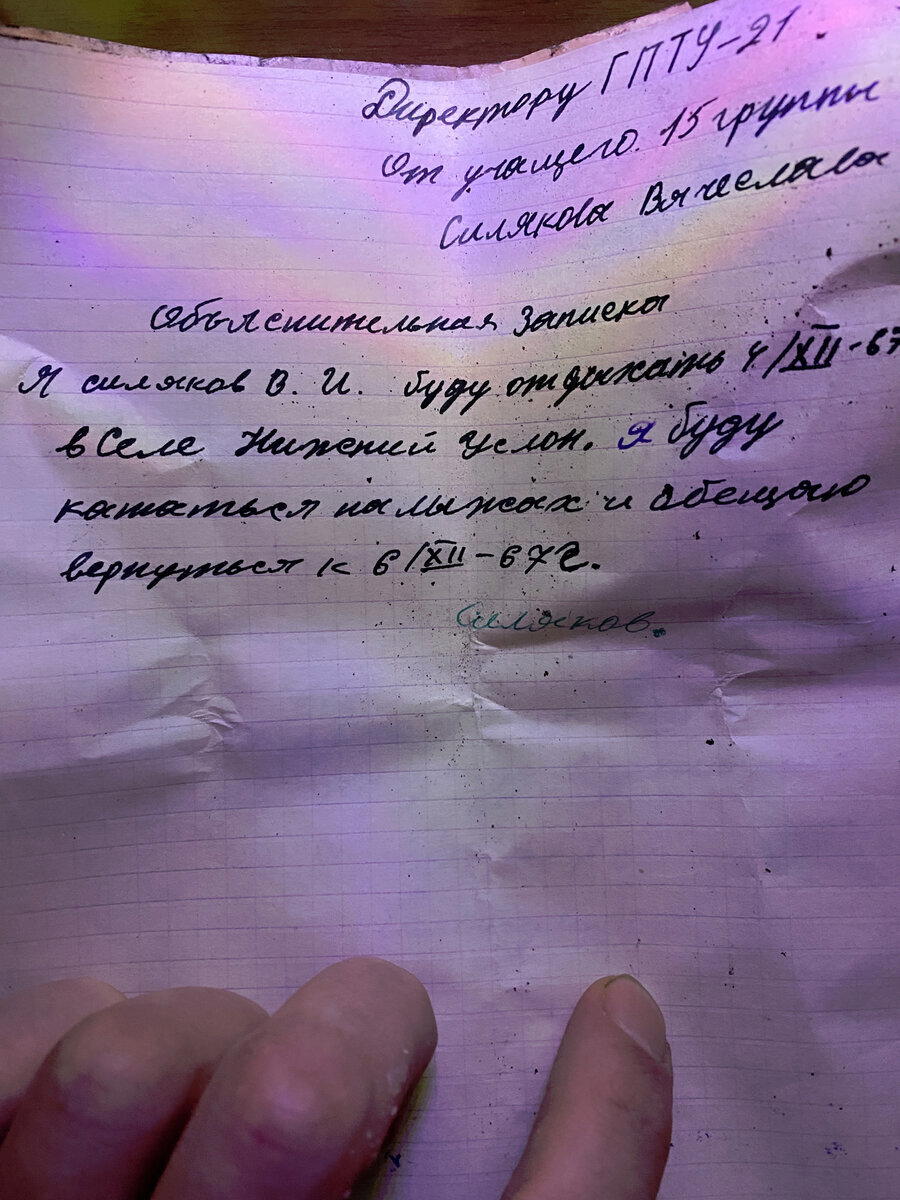 Директору ГПТУ-21.
От учащего. 15 группы
Силякова Вячеслава
Объяснительная записка
Я силяков В. И. буду отдыхать 4/XII-67
в Селе Нижний Услон. я буду
кататься на лыжах и обещаю
вернуться к 6/XII-67г.
Силяков.